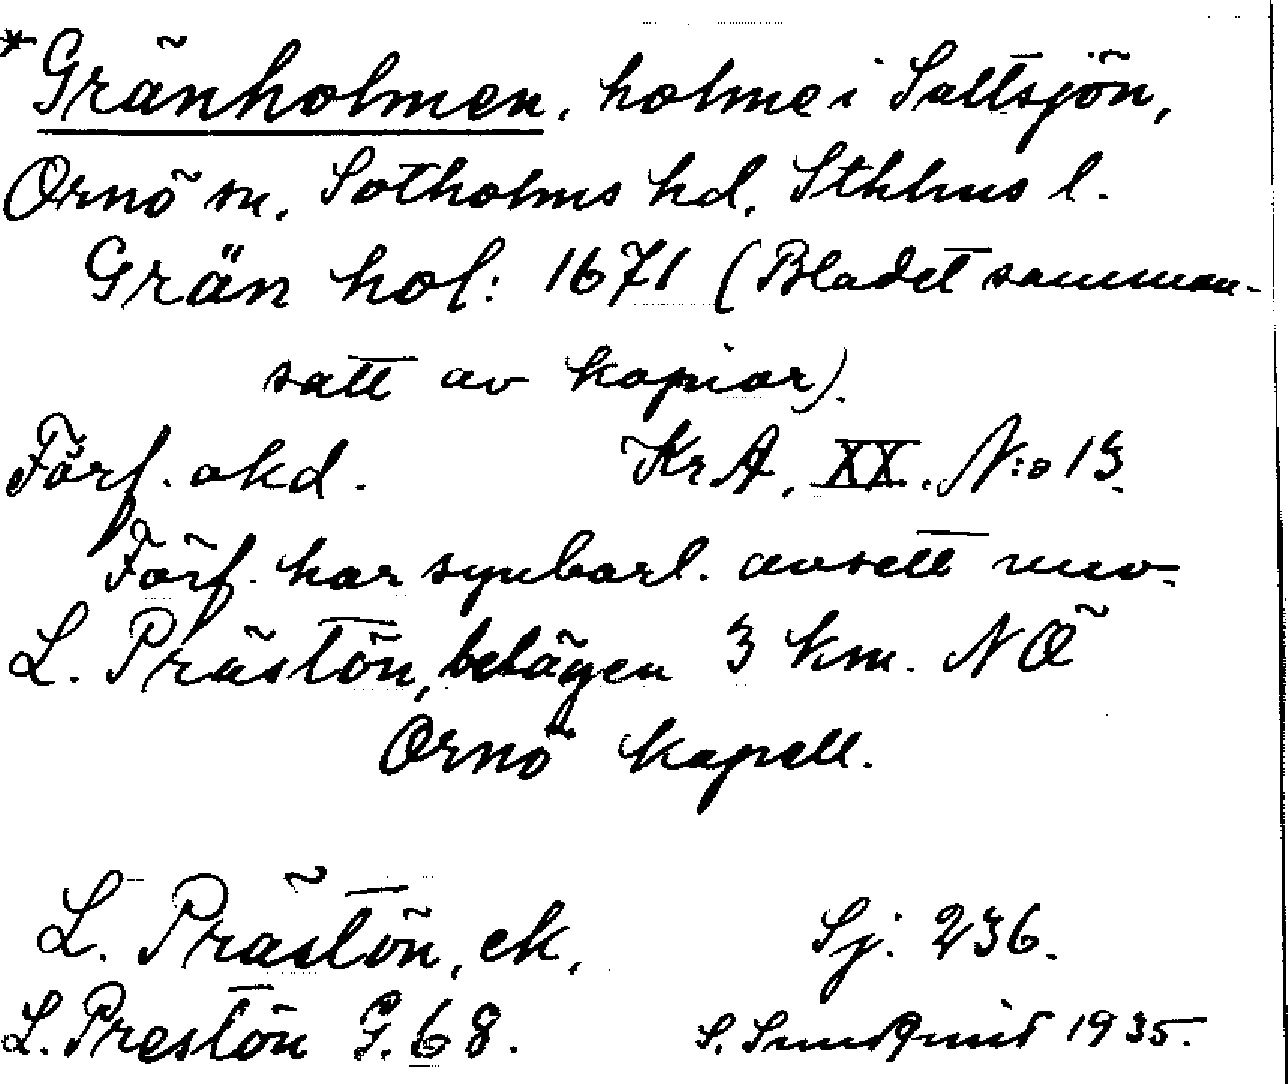 *Gränholmen, holme i Saltsjön,
Ornö sn, Sotholms hd, Sthlms l.
Grän hol: 1671 (Bladet samman-
satt av kopior).
Förf. okd. KrA, XX. N:o 13.
Förf. har synbarl. avsett nuv.
L. Prästön, belägen 3 km. NÖ
Ornö kapell.
L. Prästön, ek, Sj. 236.
L. Prestön G. 68. S. Sundquist 1935.